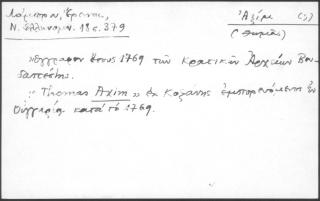 Λάμπρου, Σπυρ.,
Ν. Ἑλληνομν. 18 σ. 379
Ἀξίμ (ς)
(Θωμᾶς)
Ἔγγραφον ἔτους 1769 τῶν Κρατικῶν Ἀρχείων Βου-
δαπέστης.
"Thomas Axim" ἐκ Κοζάνης ἐμπορευόμενος ἐν
Οὑγγαρίᾳ κατὰ τὸ 1769.